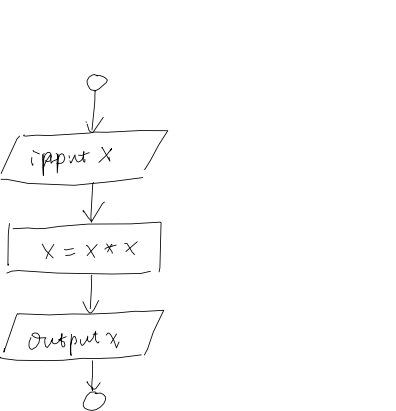 input X
X = X * X
output X